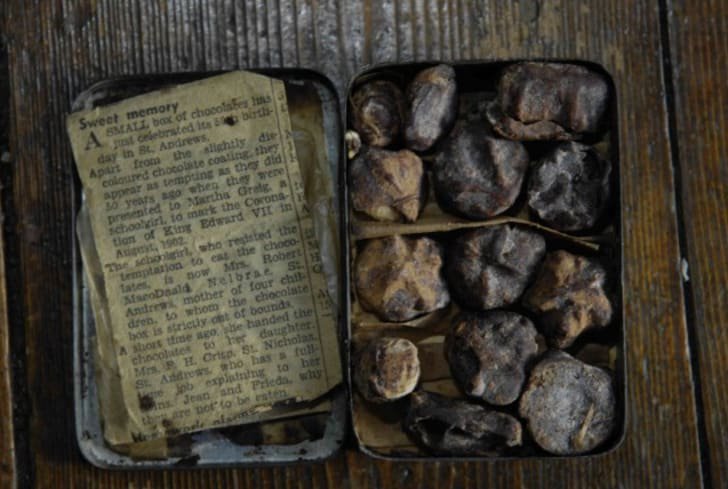 Sweet memory
A SMALL box of chocolates has
just celebrated its 50th birth-
day in St. Andrews.
Apart from the slightly dis-
coloured chocolate coating, they
appear as tempting as they did
50 years ago when they were
presented to Martha Greig, a
schoolgirl, to mark the Corona-
tion of King Edward VII in
August, 1902.
The schoolgirl, who resisted the
temptation to eat the choco-
lates, is now Mrs. Robert
MacoDnald, Nelbrae, St.
Andrews, mother of four chil-
dren, to whom the chocolate
box is strictly out of bounds.
A short time ago, she handed the
chocolates to her daughter,
Mrs. P. H. Crisp, St. Nicholas,
St. Andrews, who has a full-
time job explaining to her
twins, Jean and Frieda, why
they are not to be eaten.